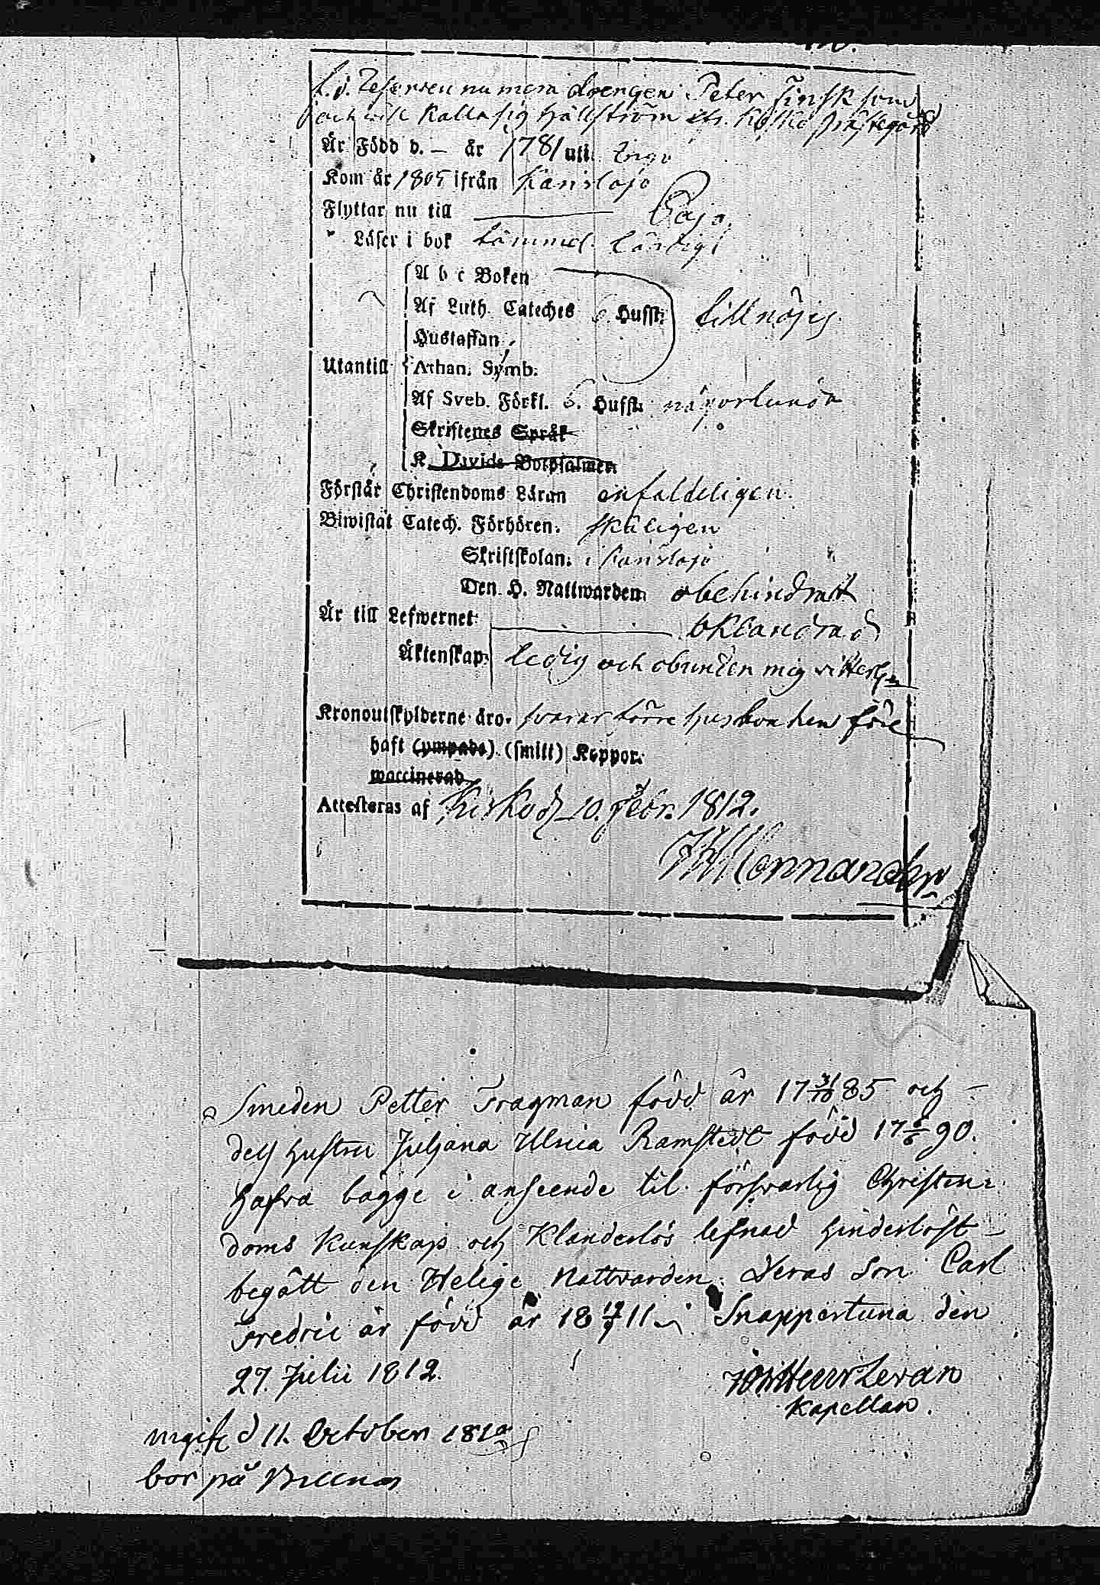 f. d. Reserven nu mera drengen Peter Finsk som
och vill kalla sig Hällström
Är Född d. — år 1781 uti Ingo
Kom år 1805 ifrån Karislojo
Flyttar nu till Pojo.
Läser i bok tämmel. färdigt
A b c Boken
Af Luth. Cateches 6. Hufst: till nöjes
Hustaflan.
Utantill Athan. Symb.
Af Sveb. Förkl. 6. Hufst. någorlunda
Skriftenes Språk
K. Davids Botpsalmer.
Förstår Christendoms Läran enfaldeligen.
Biwistat Catech. Förhören. skäligen
Skriftskolan. i Karislojo
Den H. Nattwarden obehindrat
Är till Lefwernet oklandrad
Äktenskap: ledig och obunden mig vitterl.
Kronoutskylderne äro. svarar förre husbonden före
haft (ympade) (smitt) Koppor.
waccinerad
Attesteras af Kisko d. 10. Febr. 1812.
Smeden Petter Tragman född år 17 85 och
dess hustru Juliana Ulrica Ramstedt född 17 90.
hafva bägge i anseende til försvarlig Christen:
doms kunskap och klanderlös lefnad hinderlöst
begått den Helige Nattvarden. Deras Son Carl
Fredric är född år 18 11. Snappertuna den
27. Julii 1812.
Kapellan.
d 11. October 1810
bor på Billnäs